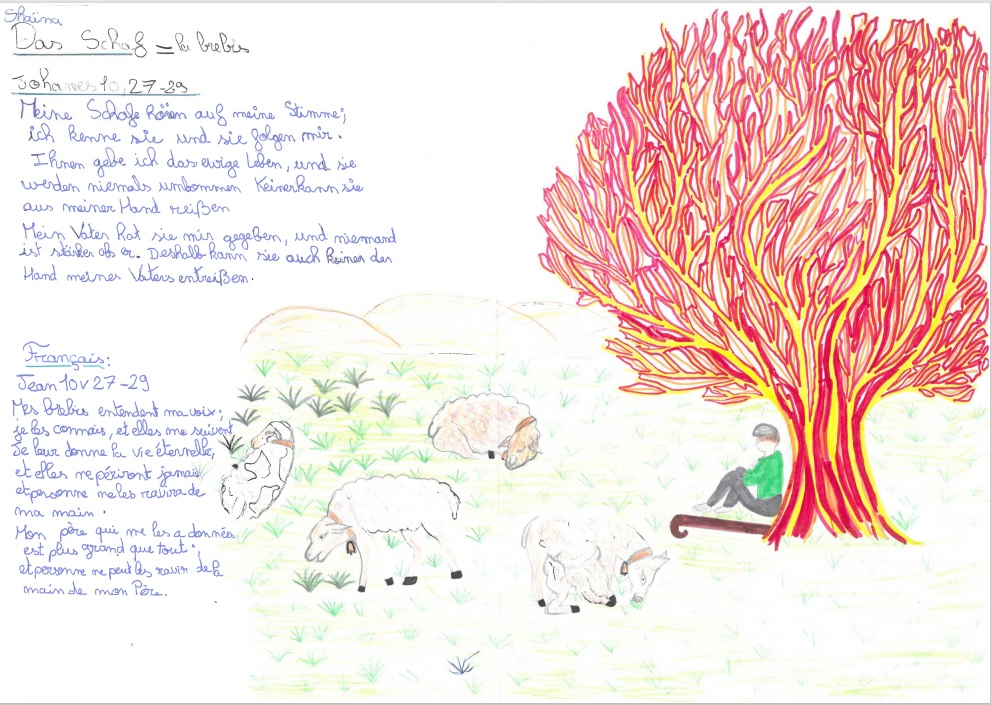 Shaïna
Das Schaf = la brebis
Johannes 10, 27-29
Meine Schafe hören auf meine Stimme;
ich kenne sie und sie folgen mir.
Ihnen gebe ich das ewige Leben, und sie
werden niemals umkommen Keiner kann sie
aus meiner Hand reißen
Mein Vater hat sie mir gegeben, und niemand
ist stärker als er. Deshalb kann sie auch keiner der
Hand meines Vaters entreißen.
Français:
Jean 10 v 27-29
Mes brebis entendent ma voix;
je les connais, et elles me suivent
Je leur donne la vie éternelle,
et elles ne périront jamais
et personne ne les ravira de
ma main.
Mon père qui me les a données,
est plus grand que tout;
et personne ne peut les ravir de la
main de mon Père.